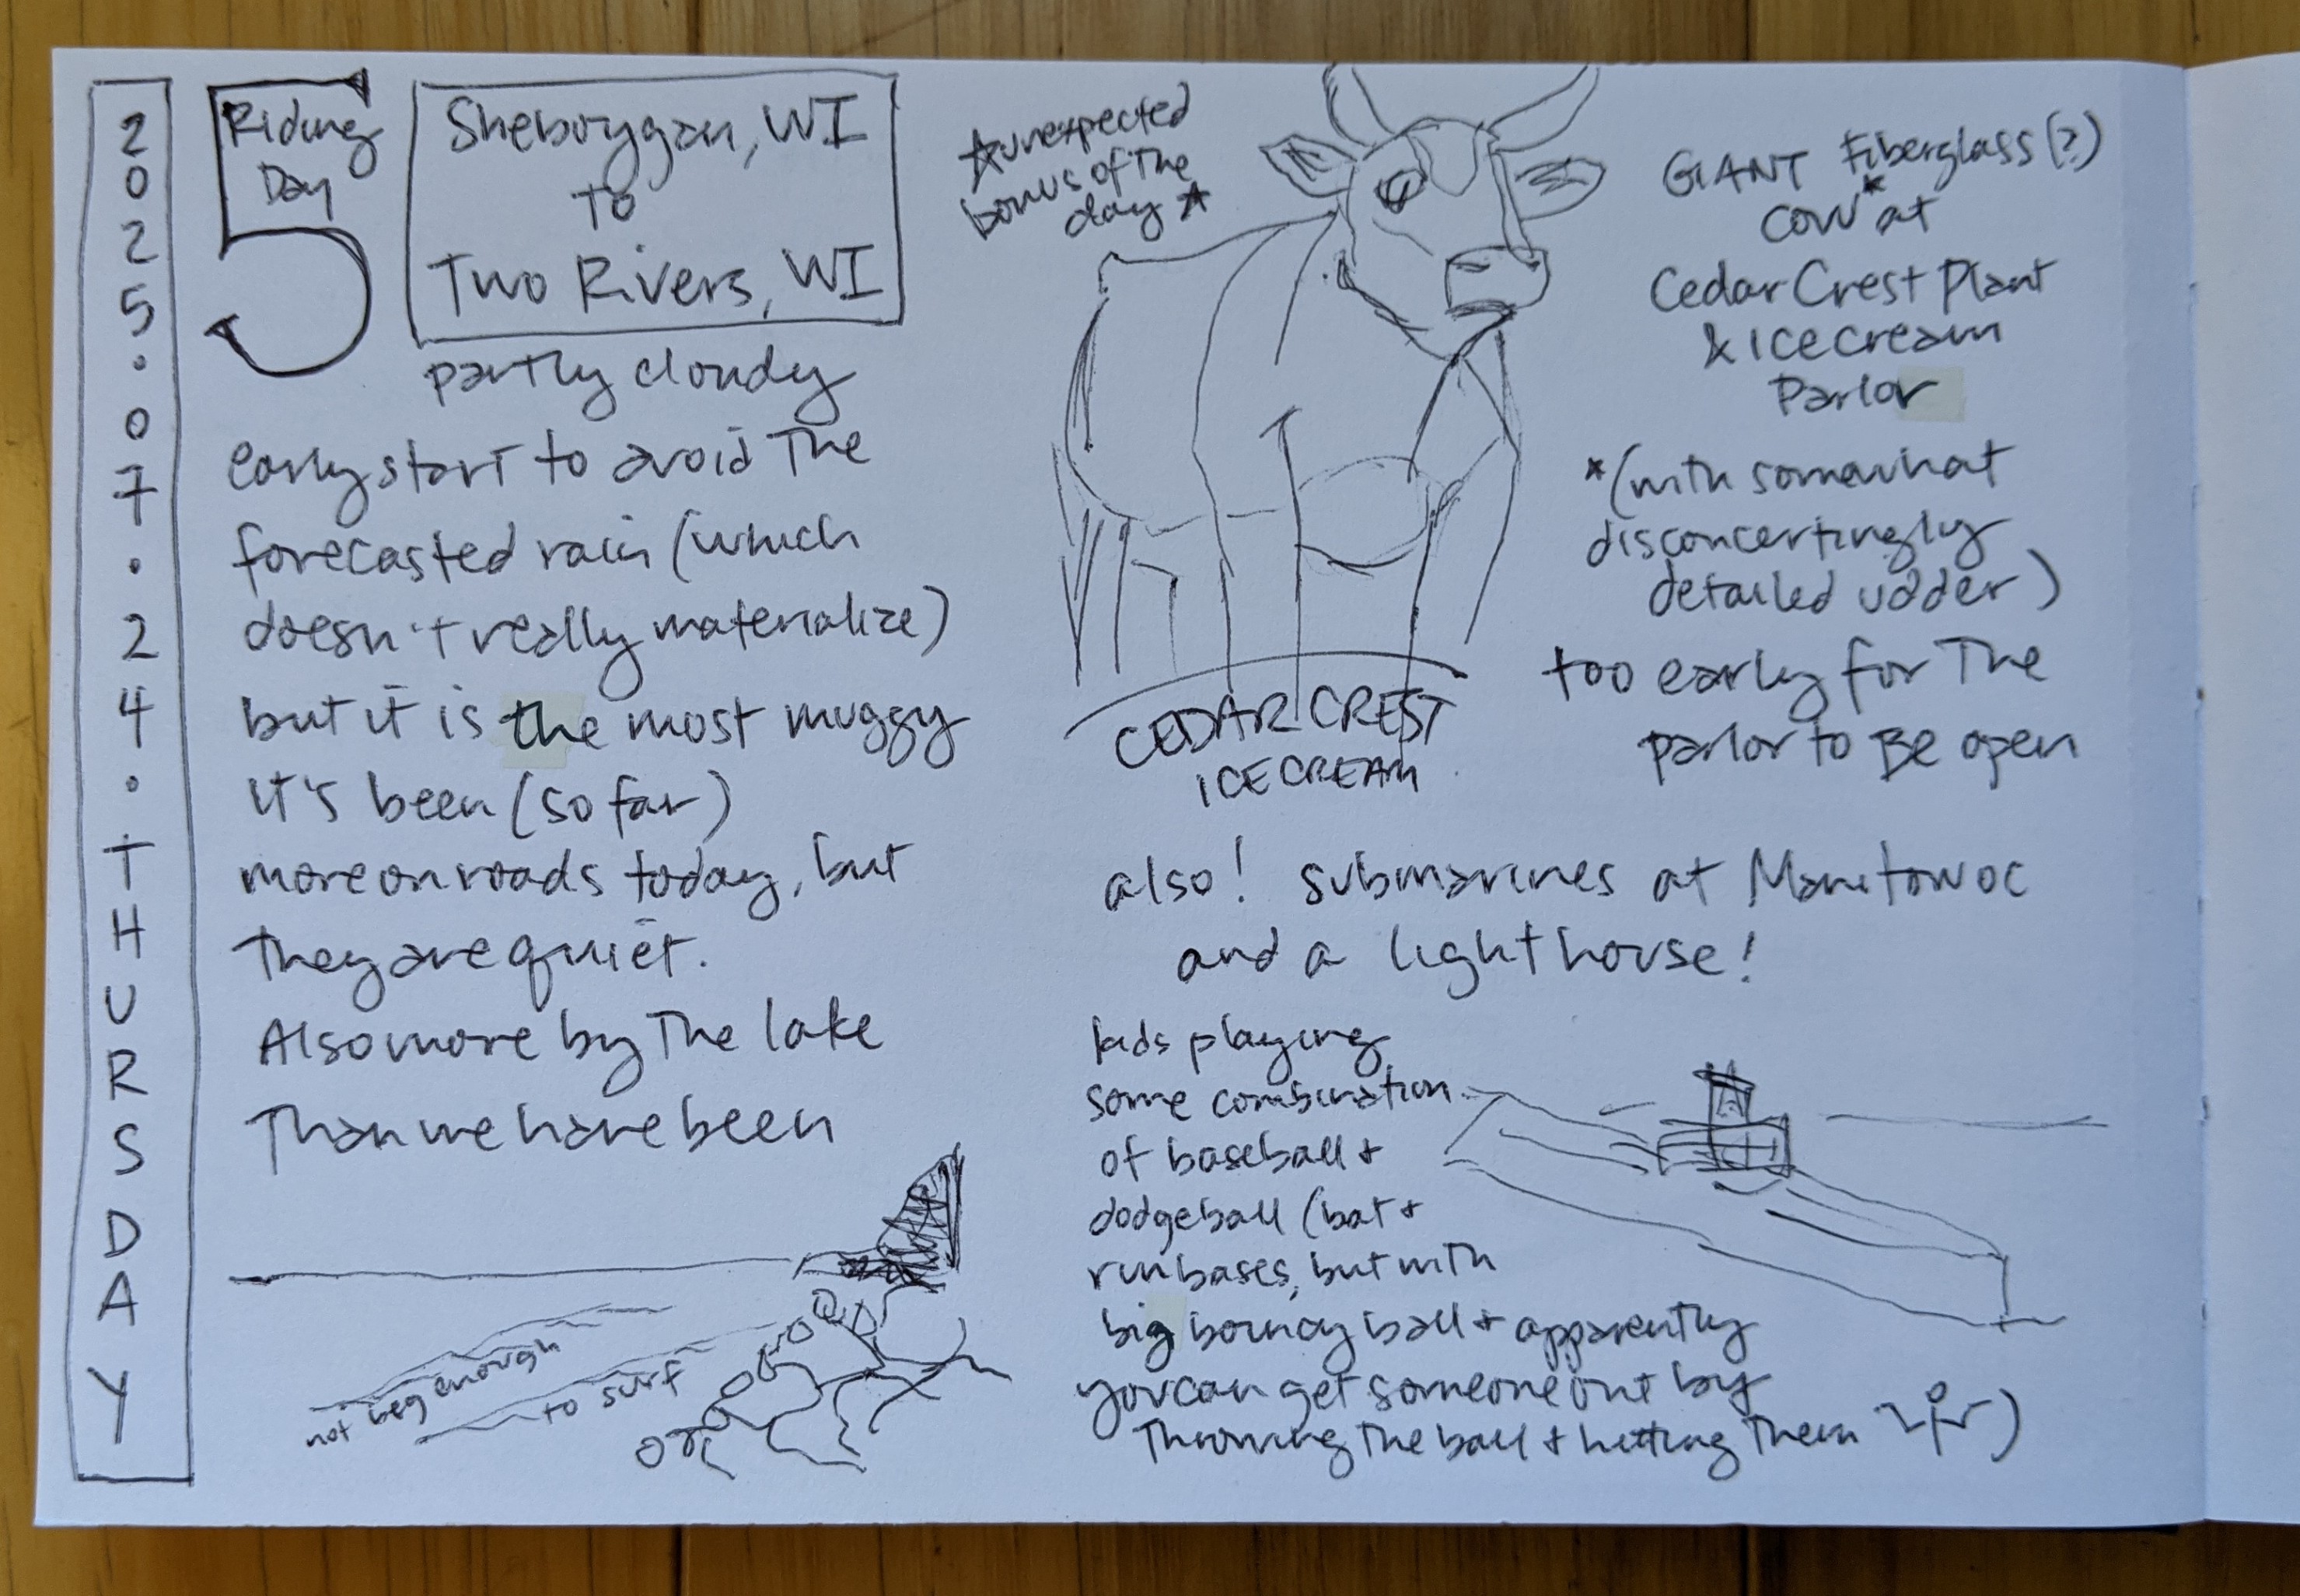 2025.07.24.THURSDAY
5
Riding
Day
Sheboygan, WI
TO
Two Rivers, WI
partly cloudy
early start to avoid the
forecasted rain (which
doesn't really materialize)
but it is the most muggy
it's been (so far)
more on roads today, but
they are quiet.
Also more by the lake
than we have been
not big enough
to surf
☆unexpected
bonus of the
day☆
GIANT Fiberglass(?)
cow* at
Cedar Crest Plant
& Ice cream
Parlor
*(with somewhat
disconcertingly
detailed udder)
too early for the
parlor to Be open
CEDAR CREST
ICE CREAM
also! submarines at Manitowoc
and a lighthouse!
kids playing
some combination
of baseball +
dodgeball (bat +
run bases, but with
big bouncy ball + apparently
you can get someone out by
throwing the ball + hitting them )